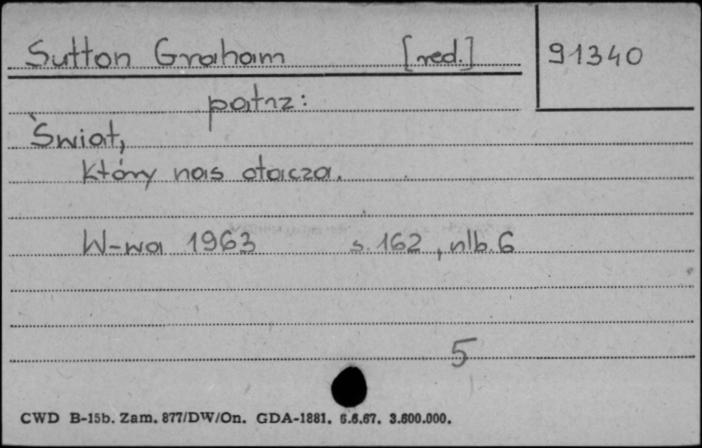 Sutton Graham [red.] 91340
patrz:
Świat,
który nas otacza.
W-wa 1963 s. 162, nlb. 6
5
CWD B-15b. Zam. 877/DW/On. GDA-1881. 6.6.67. 3.600.000.